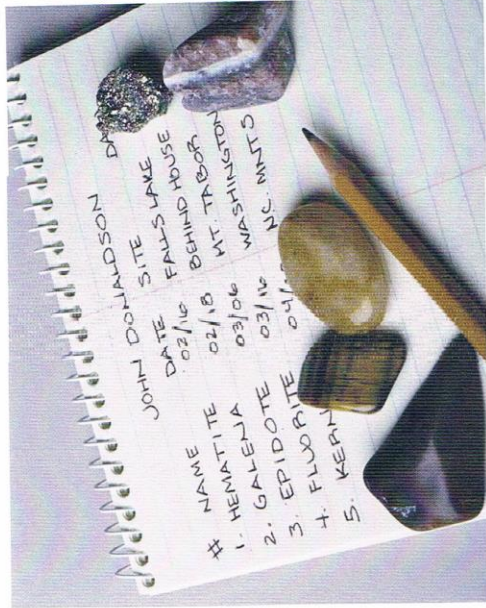 JOHN DONALDSON
# NAME DATE SITE
1. HEMATITE 02/16 FALLS LAKE
2. GALENA 02/18 BEHIND HOUSE
3. EPIDOTE 03/06 MT. TABOR
4. FLUORITE 03/16 WASHINGTON
5. NC. MNTS